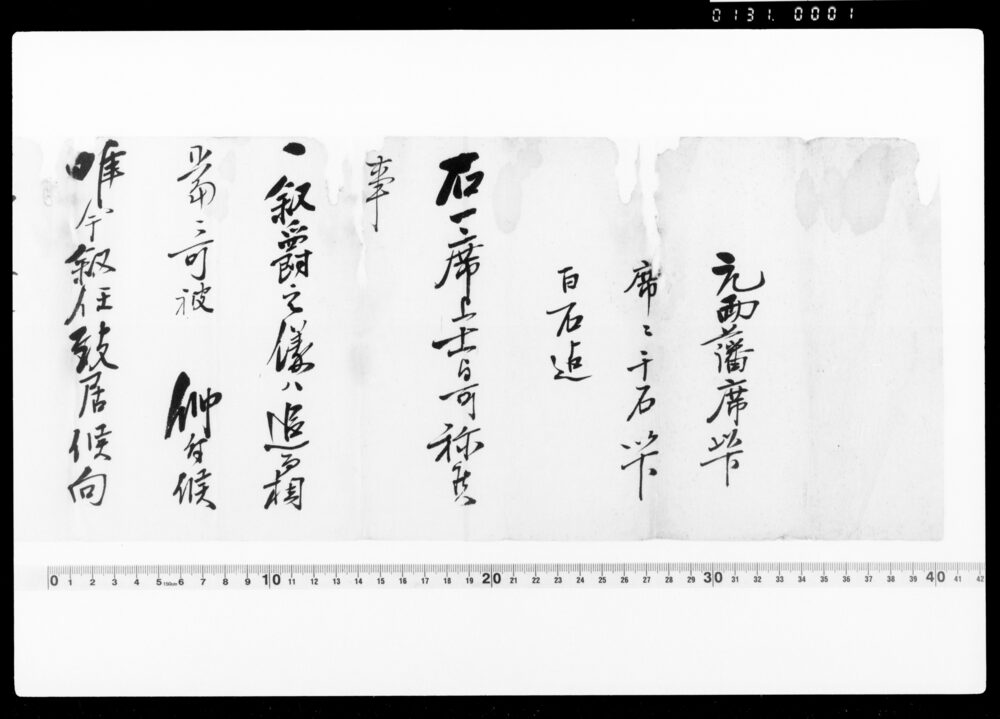 0131. 0001
元両藩席以下
席々千石以下
百石迄
右席上士与可称
事
一叙爵之儀ハ追而相
當ニ可被 仰付候
唯今叙任致居候向
0 1 2 3 4 5 150cm 6 7 8 9 10 11 12 13 14 15 16 17 18 19 20 21 22 23 24 25 26 27 28 29 30 31 32 33 34 35 36 37 38 39 40 41 42